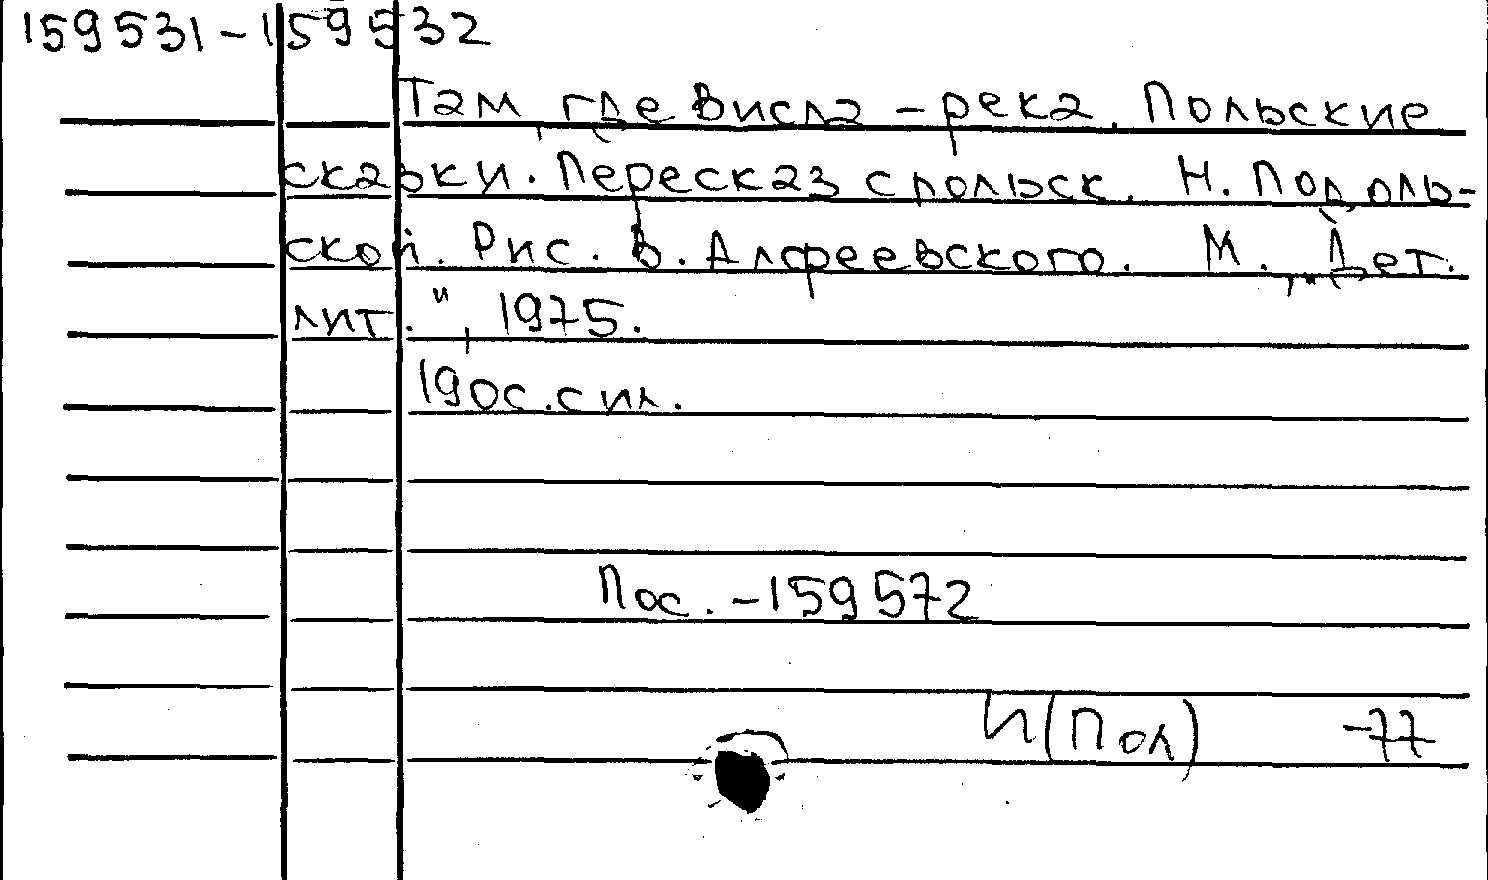 159531-159532
Там, где Висла - река. Польские
сказки. Пересказ с польск. Н. Подоль-
ской. Рис. В. Алфеевского. М., „Дет.
лит.", 1975.
190с. с ил.
Пос. - 159572
И(Пол) -77